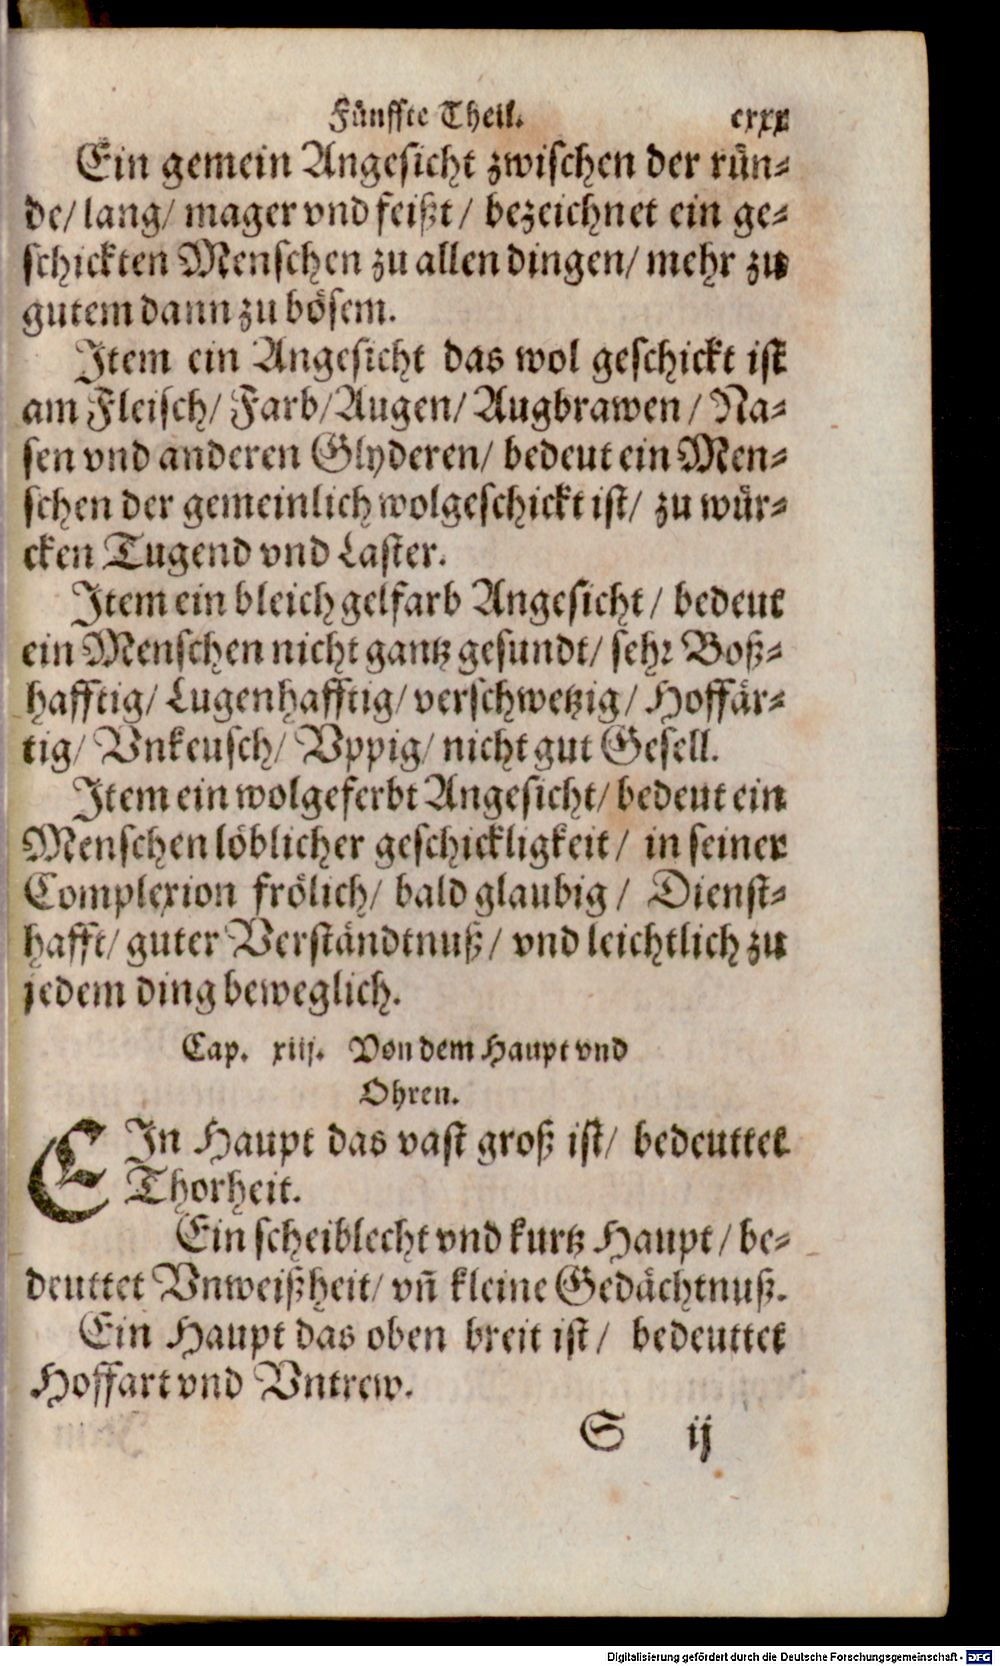 Fünffte Theil. cxxx
Ein gemein Angesicht zwischen der rün⸗
de/ lang/ mager vnd feißt/ bezeichnet ein ge⸗
schickten Menschen zu allen dingen/ mehr zu
gutem dann zu bösem.
Item ein Angesicht das wol geschickt ist
am Fleisch/ Farb/ Augen/ Augbrawen/ Na⸗
sen vnd anderen Glyderen/ bedeut ein Men⸗
schen der gemeinlich wolgeschickt ist/ zu wür⸗
cken Tugend vnd Laster.
Item ein bleich gelfarb Angesicht/ bedeut
ein Menschen nicht gantz gesundt/ sehr Boß⸗
hafftig/ Lugenhafftig/ verschwetzig/ Hoffär⸗
tig/ Vnkeusch/ Vppig/ nicht gut Gesell.
Item ein wolgeferbt Angesicht/ bedeut ein
Menschen löblicher geschickligkeit/ in seiner
Complexion frölich/ bald glaubig/ Dienst⸗
hafft/ guter Verständtnuß/ vnd leichtlich zu
jedem ding beweglich.
Cap. xiij. Von dem Haupt vnd
Ohren.
EIn Haupt das vast groß ist/ bedeuttet
Thorheit.
Ein scheiblecht vnd kurtz Haupt/ be⸗
deuttet Vnweißheit/ vñ kleine Gedächtnuß.
Ein Haupt das oben breit ist/ bedeuttet
Hoffart vnd Vntrew.
S ij
Digitalisierung gefördert durch die Deutsche Forschungsgemeinschaft - DFG